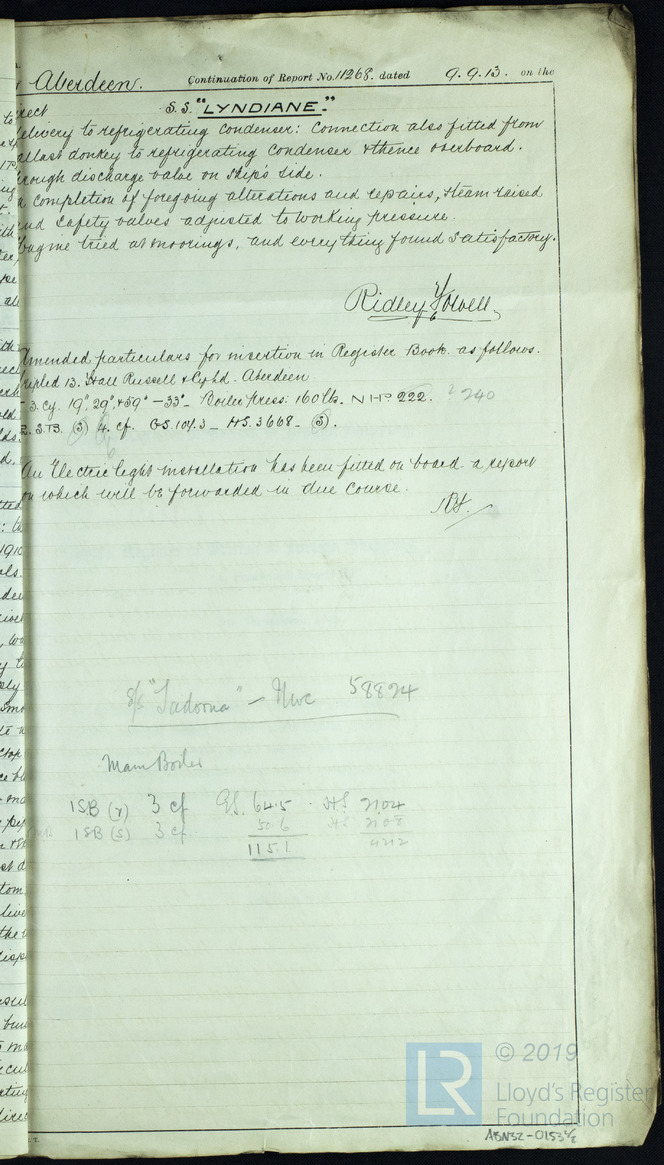 Aberdeen. Continuation of Report No. 11268. dated 9.9.13. on the
S.S. "LYNDIANE."
elivery to refrigerating condenser: Connection also fitted from
allast donkey to refrigerating condenser & thence overboard.
hrough discharge valve on ship's side.
n completion of foregoing alterations and repairs, steam raised
nd safety valves adjusted to working pressure.
ngine tried at moorings, and everything found satisfactory.
Ridley
mended particulars for insertion in Register Book as follows.
13. Hall Russell & Co Ltd. Aberdeen
3. cy. 19", 29", & 59" - 33" - Boiler press: 160 lb. N.H.P. 222. ? 240
2. S.B. (S) 4. cf. GS. 101.3 - HS. 3668 - (S).
An Electric light installation has been fitted on board a report
on which will be forwarded in due course.
s/s "Tadorna" - Nwc 58824
Main Boiler
1 SB (r) 3 cf GS. 64.5 HS 2104
1 SB (S) 3 cf 50.6 HS 2108
115.1 4212
LR © 2019
Lloyd's Register
Foundation
ABN32-0153 1/2